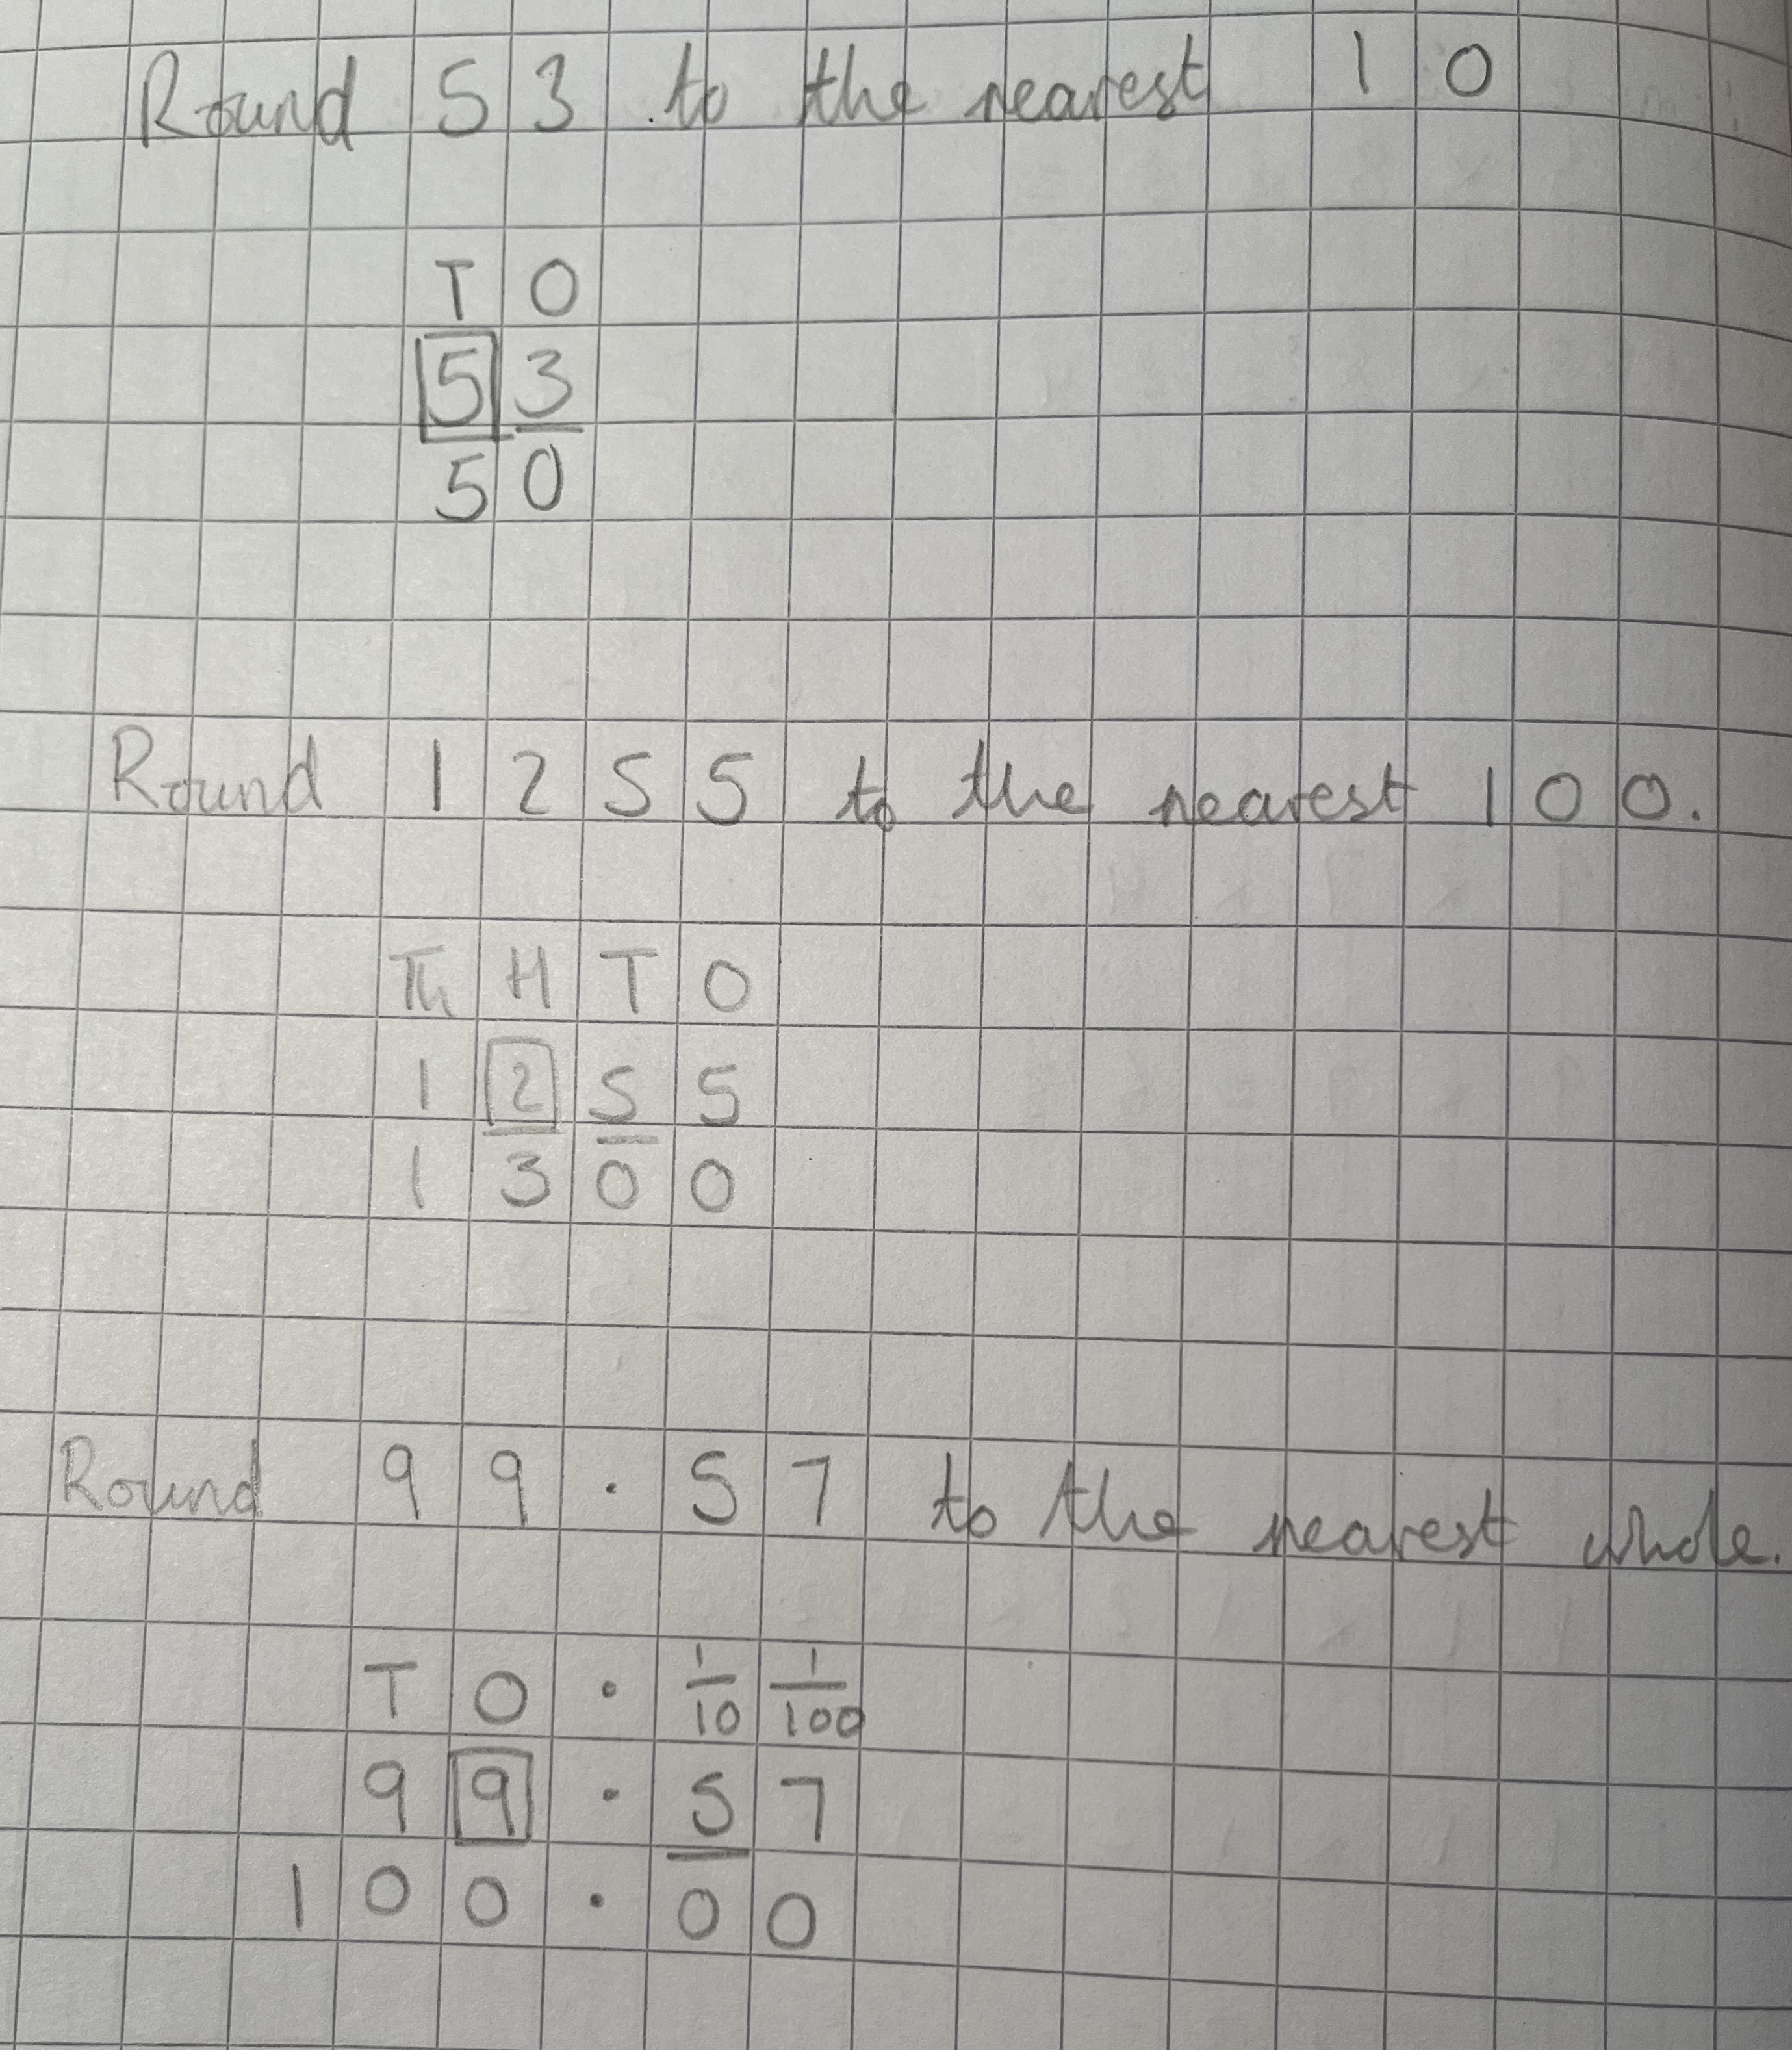 Round 53 to the nearest 10
T O
5 3
5 0
Round 1255 to the nearest 100.
Th H T O
1 2 5 5
1 3 0 0
Round 99.57 to the nearest whole.
T O . 1/10 1/100
9 9 . 5 7
1 0 0 . 0 0